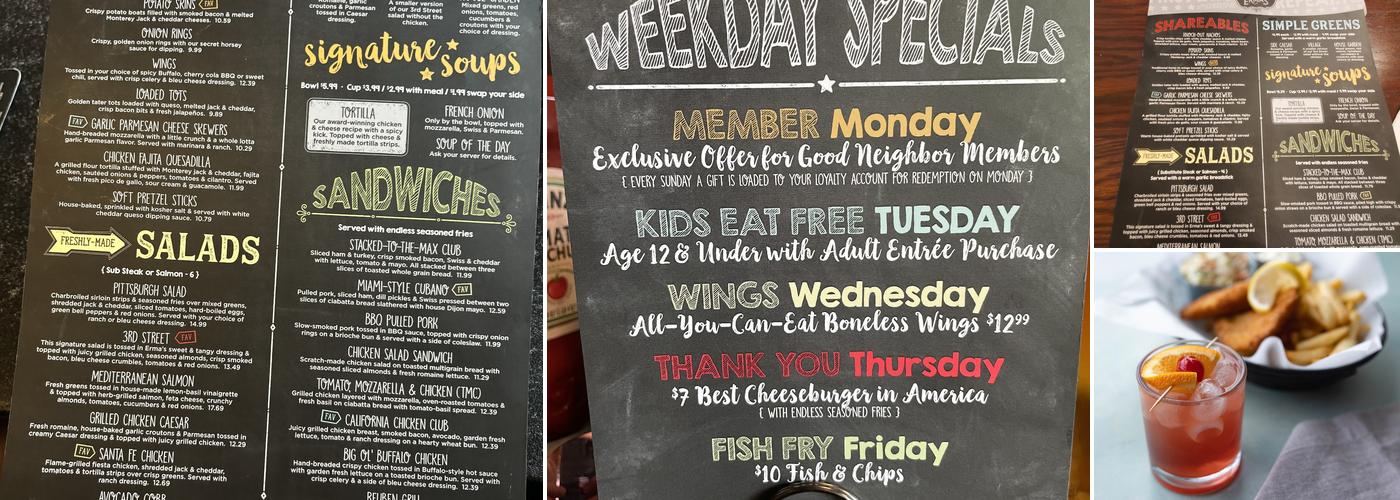 POTATO SKINS FAV
Crispy potato boats filled with smoked bacon & melted
Monterey Jack & cheddar cheeses. 10.89
ONION RINGS
Crispy, golden onion rings with our secret horsey
sauce for dipping. 9.99
WINGS
Tossed in your choice of spicy Buffalo, cherry cola BBQ or sweet
chili, served with crisp celery & bleu cheese dressing. 12.39
LOADED TOTS
Golden tater tots loaded with queso, melted jack & cheddar,
crisp bacon bits & fresh jalapeños. 9.89
FAV GARLIC PARMESAN CHEESE SKEWERS
Hand-breaded mozzarella with a little crunch & a whole lotta
garlic Parmesan flavor. Served with marinara & ranch. 10.29
CHICKEN FAJITA QUESADILLA
A grilled flour tortilla stuffed with Monterey Jack & cheddar, fajita
chicken, sautéed onions & peppers, tomatoes & cilantro. Served
with fresh pico de gallo, sour cream & guacamole. 11.99
SOFT PRETZEL STICKS
House-baked, sprinkled with kosher salt & served with white
cheddar queso dipping sauce. 10.79
FRESHLY-MADE SALADS
{ Sub Steak or Salmon - 6 }
PITTSBURGH SALAD
Charbroiled sirloin strips & seasoned fries over mixed greens,
shredded jack & cheddar, sliced tomatoes, hard-boiled eggs,
green bell peppers & red onions. Served with your choice of
ranch or bleu cheese dressing. 14.99
3RD STREET FAV
This signature salad is tossed in Erma's sweet & tangy dressing &
topped with juicy grilled chicken, seasoned almonds, crisp smoked
bacon, bleu cheese crumbles, tomatoes & red onions. 13.49
MEDITERRANEAN SALMON
Fresh greens tossed in house-made lemon-basil vinaigrette
& topped with herb-grilled salmon, feta cheese, crunchy
almonds, tomatoes, cucumbers & red onions. 17.69
GRILLED CHICKEN CAESAR
Fresh romaine, house-baked garlic croutons & Parmesan tossed in
creamy Caesar dressing & topped with juicy grilled chicken. 12.29
FAV SANTA FE CHICKEN
Flame-grilled fiesta chicken, shredded jack & cheddar,
tomatoes & tortilla strips over crisp greens. Served with
ranch dressing. 12.69
AVOCADO COBB
Romaine, garlic
croutons &
Parmesan
tossed in Caesar
dressing.
A smaller version
of our 3rd Street
salad without the
chicken.
Mixed greens, red
onions, tomatoes,
cucumbers &
croutons with your
choice of dressing.
signature soups
Bowl $5.99 · Cup $3.99 / $2.99 with meal / $4.99 swap your side
TORTILLA
Our award-winning chicken
& cheese recipe with a spicy
kick. Topped with cheese &
freshly made tortilla strips.
FRENCH ONION
Only by the bowl, topped with
mozzarella, Swiss & Parmesan.
SOUP OF THE DAY
Ask your server for details.
SANDWICHES
Served with endless seasoned fries
STACKED-TO-THE-MAX CLUB
Sliced ham & turkey, crisp smoked bacon, Swiss & cheddar
with lettuce, tomato & mayo. All stacked between three
slices of toasted whole grain bread. 11.99
MIAMI-STYLE CUBANO FAV
Pulled pork, sliced ham, dill pickles & Swiss pressed between two
slices of ciabatta bread slathered with house Dijon mayo. 12.59
BBQ PULLED PORK
Slow-smoked pork tossed in BBQ sauce, topped with crispy onion
rings on a brioche bun & served with a side of coleslaw. 11.99
CHICKEN SALAD SANDWICH
Scratch-made chicken salad on toasted multigrain bread with
seasoned sliced almonds & fresh romaine lettuce. 11.29
TOMATO, MOZZARELLA & CHICKEN (TMC)
Grilled chicken layered with mozzarella, oven-roasted tomatoes &
fresh basil on ciabatta bread with tomato-basil spread. 12.39
FAV CALIFORNIA CHICKEN CLUB
Juicy grilled chicken breast, smoked bacon, avocado, garden fresh
lettuce, tomato & ranch dressing on a hearty wheat bun. 12.39
BIG OL' BUFFALO CHICKEN
Hand-breaded crispy chicken tossed in Buffalo-style hot sauce
with garden fresh lettuce on a toasted brioche bun. Served with
crisp celery & a side of bleu cheese dressing. 12.39
REUBEN GRILL
WEEKDAY SPECIALS
MEMBER Monday
Exclusive Offer for Good Neighbor Members
{ EVERY SUNDAY A GIFT IS LOADED TO YOUR LOYALTY ACCOUNT FOR REDEMPTION ON MONDAY }
KIDS EAT FREE TUESDAY
Age 12 & Under with Adult Entrée Purchase
WINGS Wednesday
All-You-Can-Eat Boneless Wings $12.99
THANK YOU Thursday
$7 Best Cheeseburger in America
{ WITH ENDLESS SEASONED FRIES }
FISH FRY Friday
$10 Fish & Chips
SHAREABLES
KNOCK-OUT NACHOS
POTATO SKINS
WINGS
LOADED TOTS
FAV GARLIC PARMESAN CHEESE SKEWERS
CHICKEN FAJITA QUESADILLA
SOFT PRETZEL STICKS
FRESHLY-MADE SALADS
{ Substitute Steak or Salmon - 4 }
Served with a warm garlic breadstick
PITTSBURGH SALAD
3RD STREET FAV
MEDITERRANEAN SALMON
SIMPLE GREENS
SIDE CAESAR
VILLAGE
HOUSE GARDEN
signature soups
TORTILLA
FRENCH ONION
SOUP OF THE DAY
SANDWICHES
Served with endless seasoned fries
STACKED-TO-THE-MAX CLUB
BBQ PULLED PORK FAV
CHICKEN SALAD SANDWICH
TOMATO, MOZZARELLA & CHICKEN (TMC)